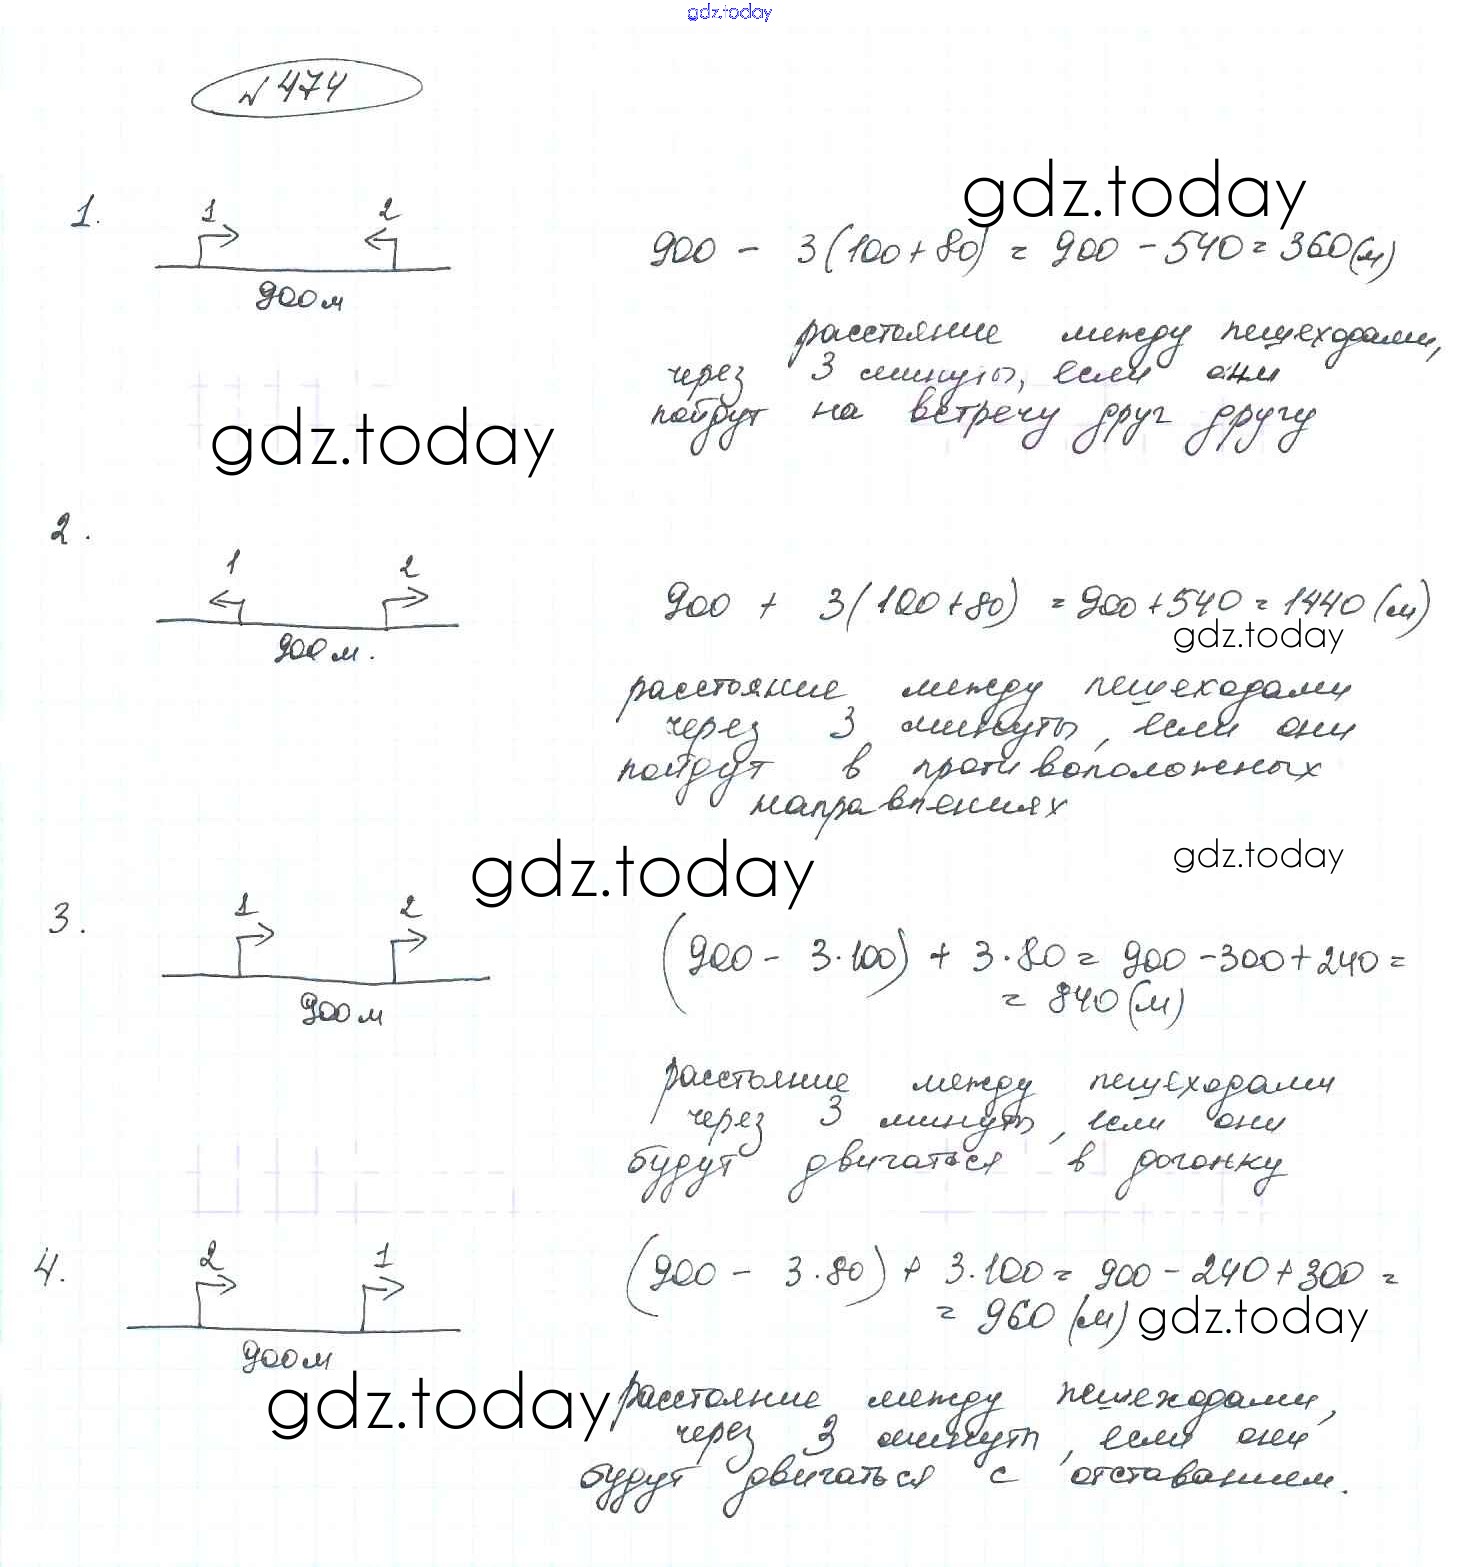 gdz.today
№ 474
1.
1 2
900 м
gdz.today
900 - 3(100+80) = 900 - 540 = 360 (м)
расстояние между пешеходами,
через 3 минуты, если они
пойдут на встречу друг другу
gdz.today
2.
1 2
900 м.
900 + 3(100+80) = 900+540 = 1440 (м)
gdz.today
расстояние между пешеходами
через 3 минуты, если они
пойдут в противоположных
направлениях
gdz.today
gdz.today
3.
1 2
900 м
(900 - 3·100) + 3·80 = 900 - 300 + 240 =
= 840 (м)
расстояние между пешеходами
через 3 минуты, если они
будут двигаться в догонку
4.
2 1
900 м
(900 - 3·80) + 3·100 = 900 - 240 + 300 =
= 960 (м)
gdz.today
gdz.today
расстояние между пешеходами,
через 3 минуты, если они
будут двигаться с отставанием.